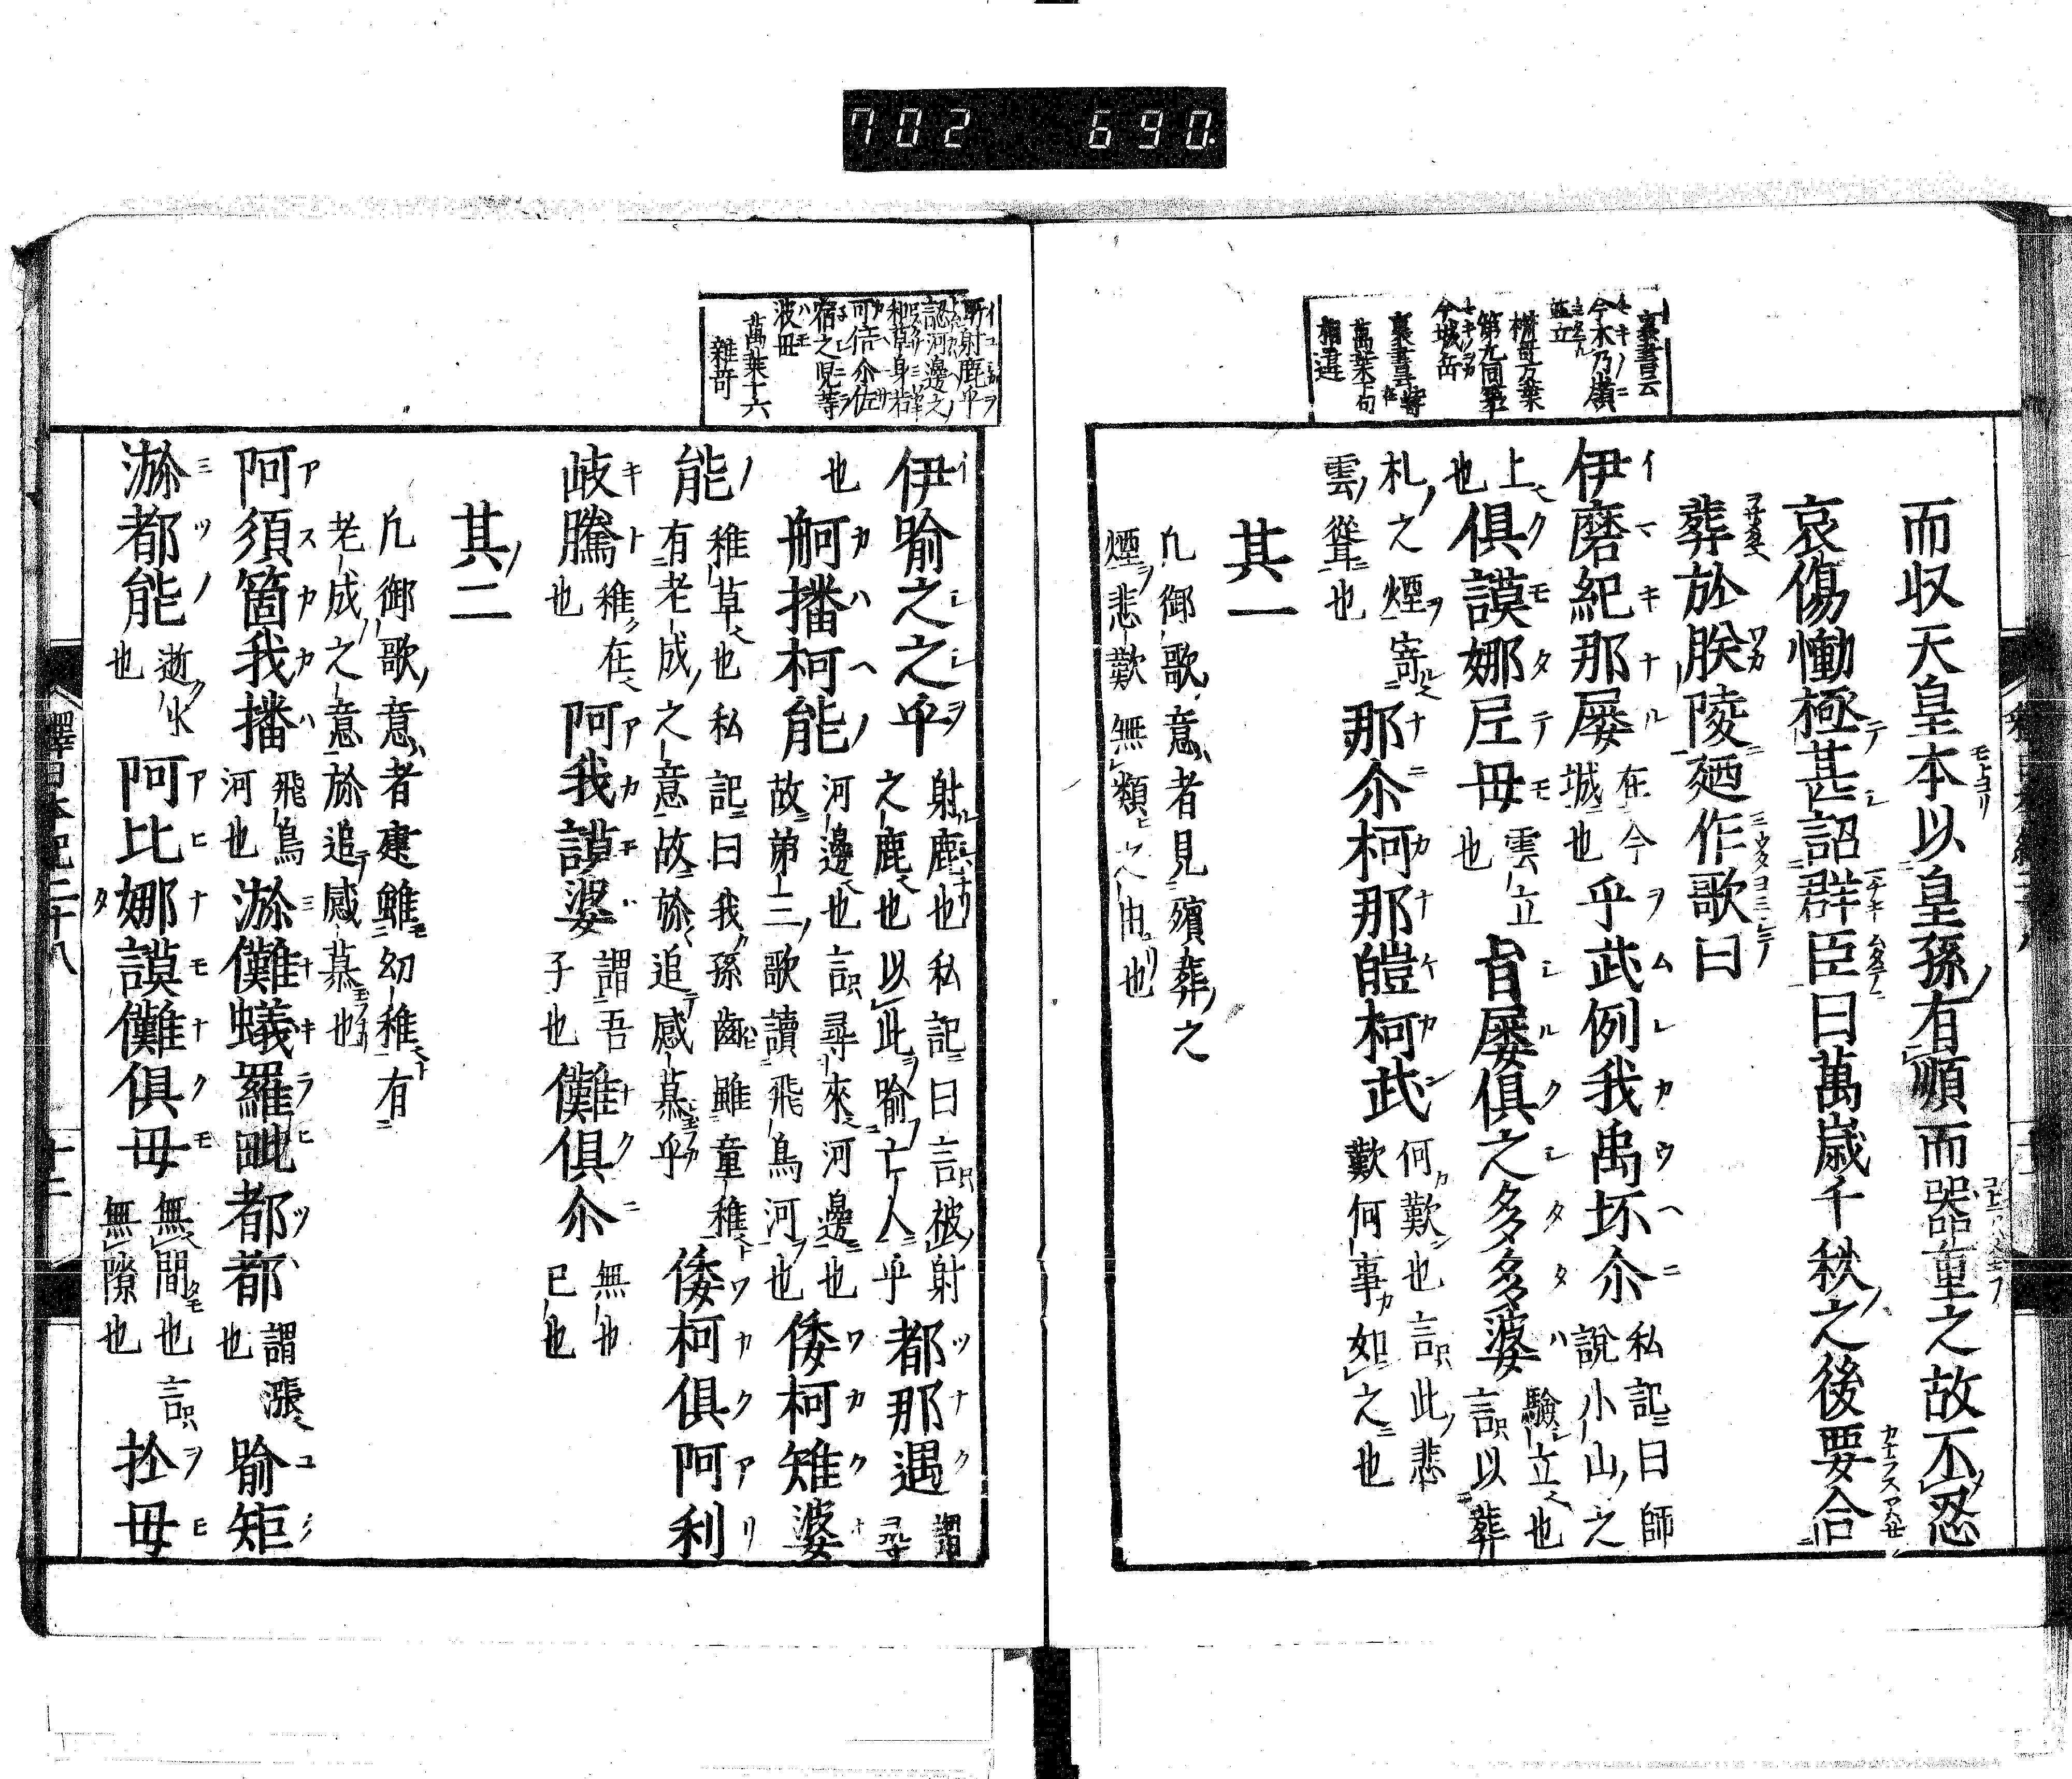 702 690
裏書云
今木乃嶺
第九同第
今城岳
萬葉上句
相違
而収天皇本以皇孫有順而器重之故不忍
哀傷慟極甚詔群臣曰萬歳千秋之後要合
葬於朕陵廼作歌曰
伊磨紀那屡 在今城也 乎武例我禹坏尒 私記曰師説小山之
上也 倶謨娜尼母 雲立也 旨屡倶之多多婆 驗立也言以葬
礼之煙寄雲聳也 那尒柯那皚柯武 何歎也言此悲歎何事如之也
其一
凡御歌意者見殯葬之
煙悲歎無類之由也
所射鹿乎
認河邊之
和草身若
可倍尒佐
宿之兒等
波毋
萬葉十六
雜哥
伊喩之之乎 射鹿也私記曰言被射之鹿也以此喩亡人乎 都那遇 謂尋
也 舸播柯能 河邊也言尋來河邊也故第三歌讀飛鳥河也 倭柯矩婆
能 稚草也私記曰我孫齢雖童稚有老成之意故於追感慕乎 倭柯倶阿利
岐騰 稚在也 阿我謨婆 謂吾子也 儺倶尒 無也已也
其二
凡御歌意者建雖幼稚有
老成之意於追感慕也
阿須箇我播 飛鳥河也 瀰儺蟻羅毗都都 謂漲也 喩矩
瀰都能 逝水也 阿比娜謨儺倶母 無間也言無隙也 於母
釋日本紀二十八
十二